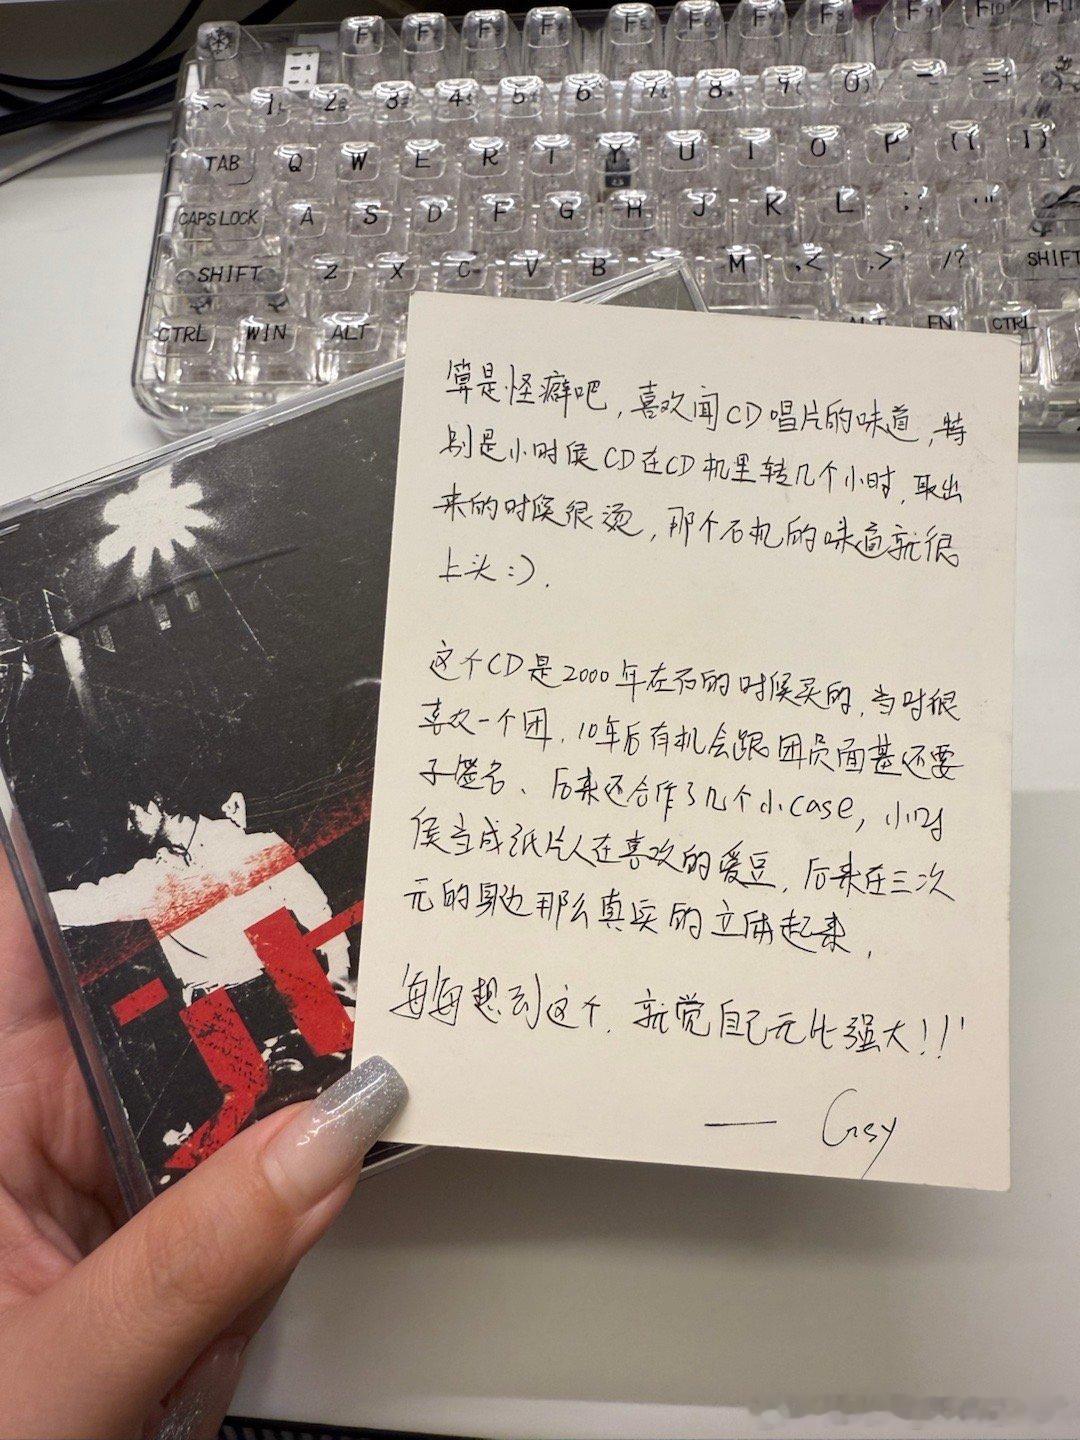 F1 F2 F3 F4 F5 F6 F7 F8 F9 F10 F11
~ 1 2 3 4 5 6 7 8 9 0 - =+
TAB Q W E R T Y U I O P
CAPS LOCK A S D F G H J K L : "
SHIFT Z X C V B M ,< .> /? SHIFT
CTRL WIN ALT ALT FN CTRL
算是怪癖吧，喜欢闻CD唱片的味道，特
别是小时候CD在CD机里转几个小时，取出
来的时候很烫，那个石机的味道就很
上头:).
这个CD是2000年在石的时候买的，当时很
喜欢一个团，10年后有机会跟团员面甚还要
了签名、后来还合作了几个小case，小时
候当成纸片人在喜欢的爱豆，后来在三次
元的身边那么真实的立体起来，
每每想到这个，就觉自己无比强大!!!
—— Gsy